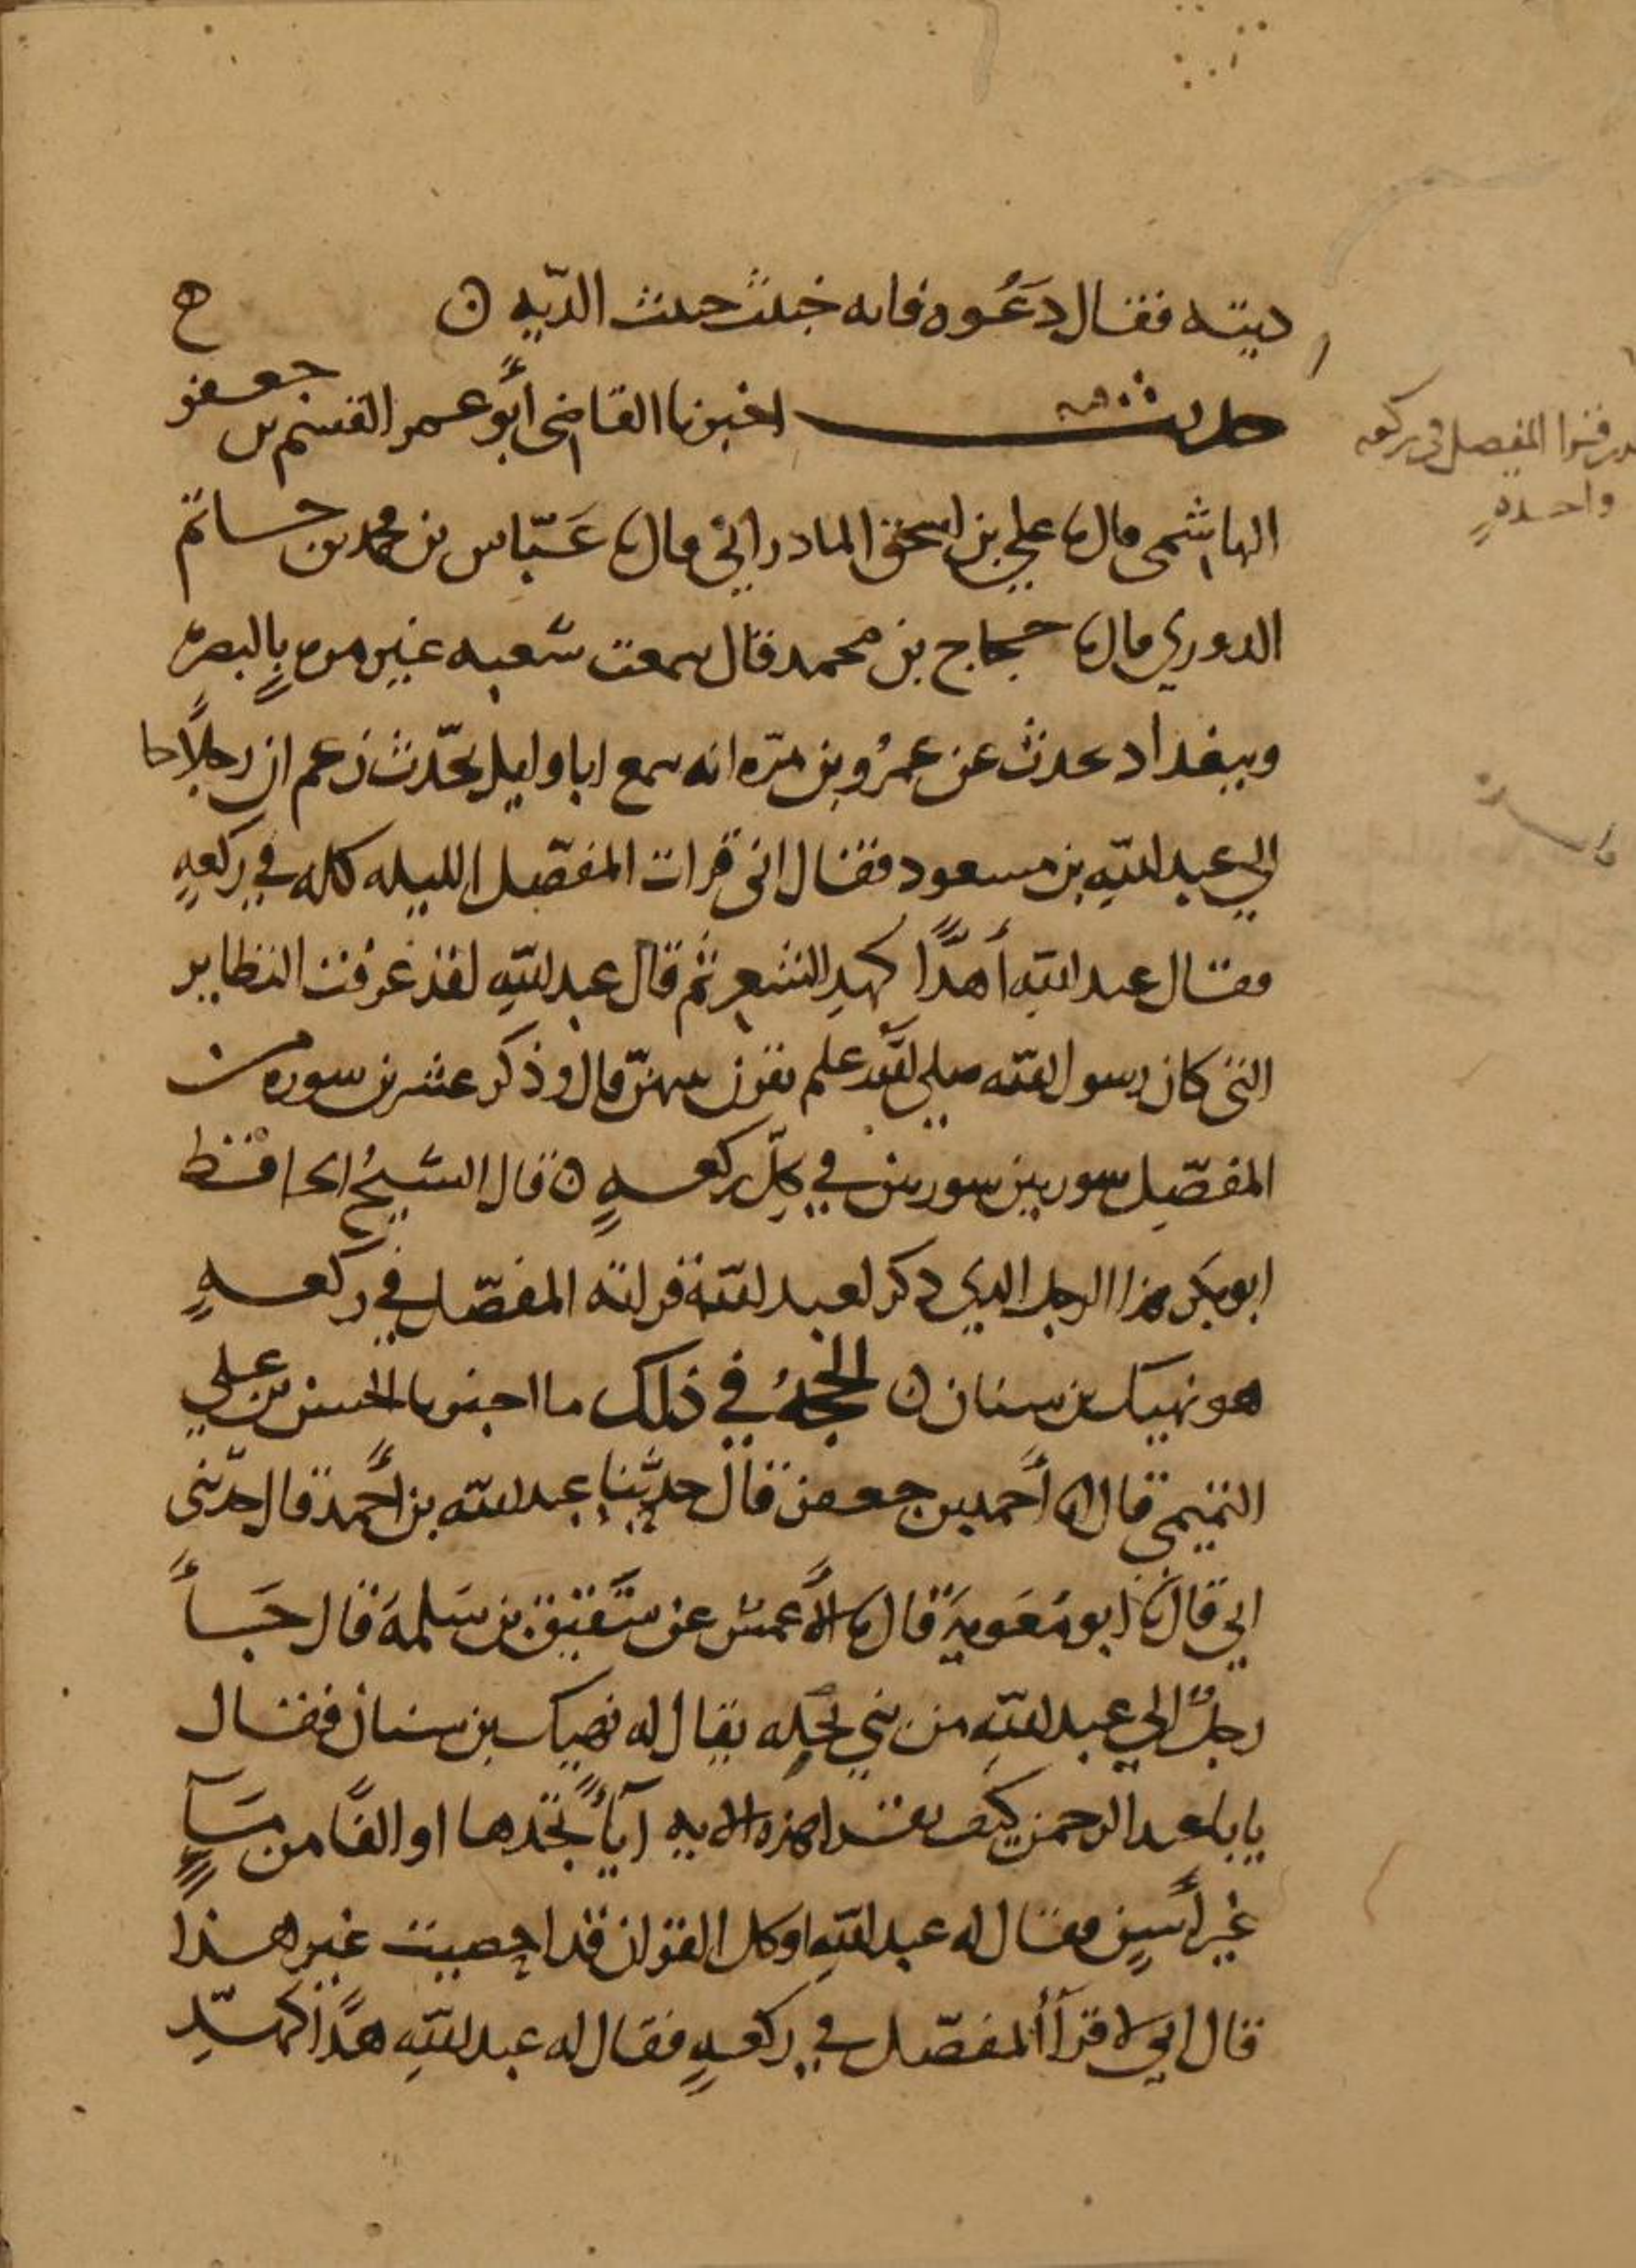 ديته فقال دعوه فانه خبيث خبيث الديه ن ح
حديث اخبرنا القاضى أبو عمر القسم بن جعفر
الهاشمى قال نا علي بن اسحق المادرائي قال نا عَبّاس بن محمد بن حاتم
الدوري قال نا حجاج بن محمد قال سمعت شعبه غير مره بالبصره
وببغداد يحدث عن عمرو بن مرّه انه سمع ابا وايل يحّدث زعم ان رجلاً جا
الي عبد اللّهِ بن مسعود فقال انى قرات المفصّل الليله كله في ركعهٍ
فقال عبد اللّه أهذًّا كهذِ الشعرِ ثم قال عبد اللّهِ لقد عرفت النظاير
التى كان رسول اللّه صلى الله علم يقرن بينهنّ قال وذكر عشرين سوره من
المفصّلِ سورتين سورتين في كلِّ ركعهٍ ن قال الشيخُ الحافظ
ابو بكر هذا الرجل الذي ذكر لعبد اللّه قراته المفصّل في ركعهٍ
هو نهيك بن سنان ن الحجهُ في ذلك ما اخبرنا الحسن بن علي
التميمي قال انا أحمد بن جعفر قال حدثنا عبد اللّه بن أحمد قال حدّثنى
ابي قال نا ابو مَعَويَه قال نا الأعمش عن شَقيق بن سَلمهَ قال جَاأَ
رجلٌ الي عبد اللّهِ من بني بجله يقال له نهيك بن سنان فقال
يابا عبد الرحمن كيف تقرا هذه الايه آيأً تجّدها او الفًا من مَآءٍ
غيرِ أَسِنٍ فقال له عبد اللّهِ اوكل القران قد احصيت غير هذا
قال اني لاقرَأ ألمفصّل في ركعهٍ فقال له عبد اللّهِ هذًّا كهذِّ
فى ركعه
واحدهٍ